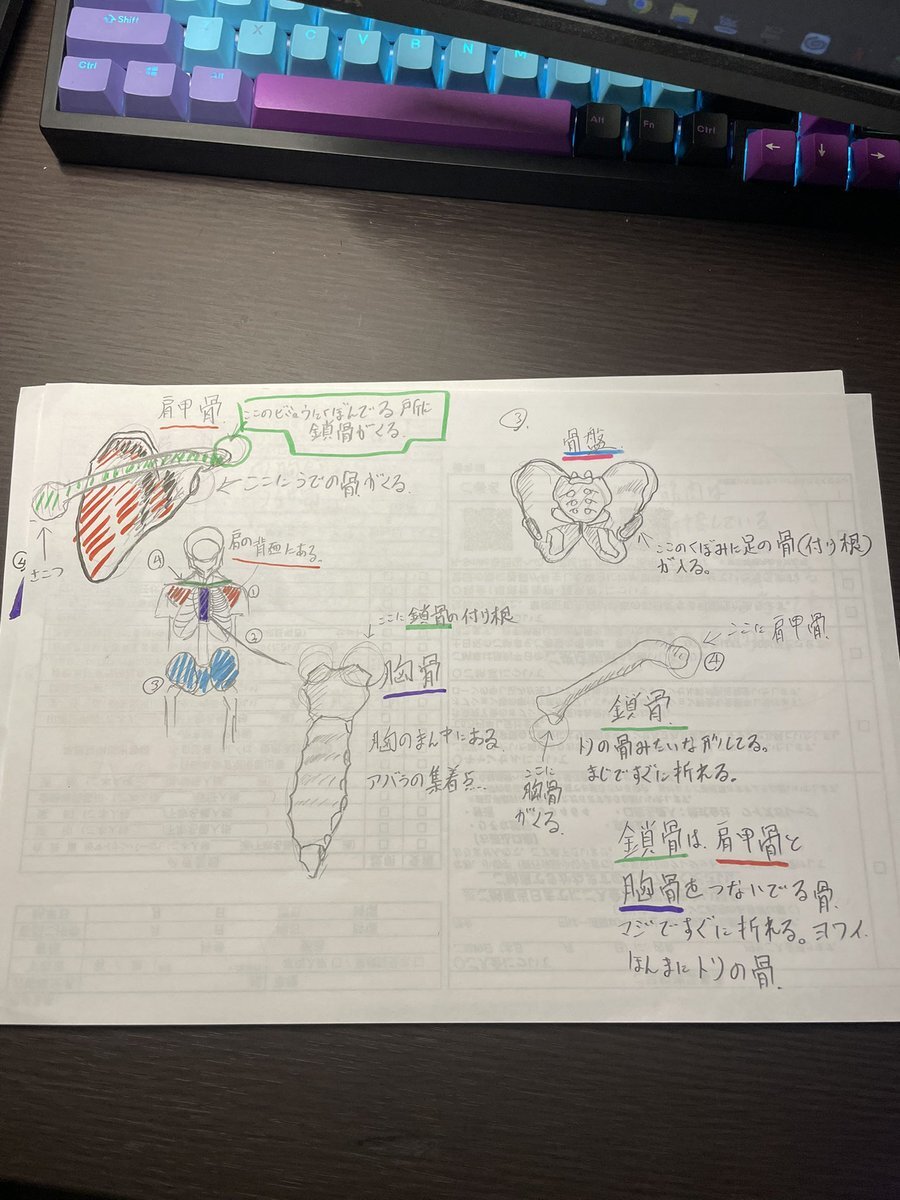 Shift
X
C
V
B
N
M
Ctrl
Alt
Alt
Fn
Ctrl
←
↓
→
肩甲骨
ここのビミョウにくぼんでる所に
鎖骨がくる
← ここにうでの骨がくる
④
さこつ
肩の背面にある
④
①
②
③
ここに鎖骨の付け根
胸骨
胸のまん中にある
アバラの集着点..
③.
骨盤
ここのくぼみに足の骨(付け根)
が入る。
← ここに肩甲骨
④
鎖骨
トリの骨みたいな形してる。
まじですぐに折れる。
ここに
胸骨
がくる
鎖骨は、肩甲骨と
胸骨をつないでる骨
マジですぐに折れる。ヨワイ.
ほんまにトリの骨.